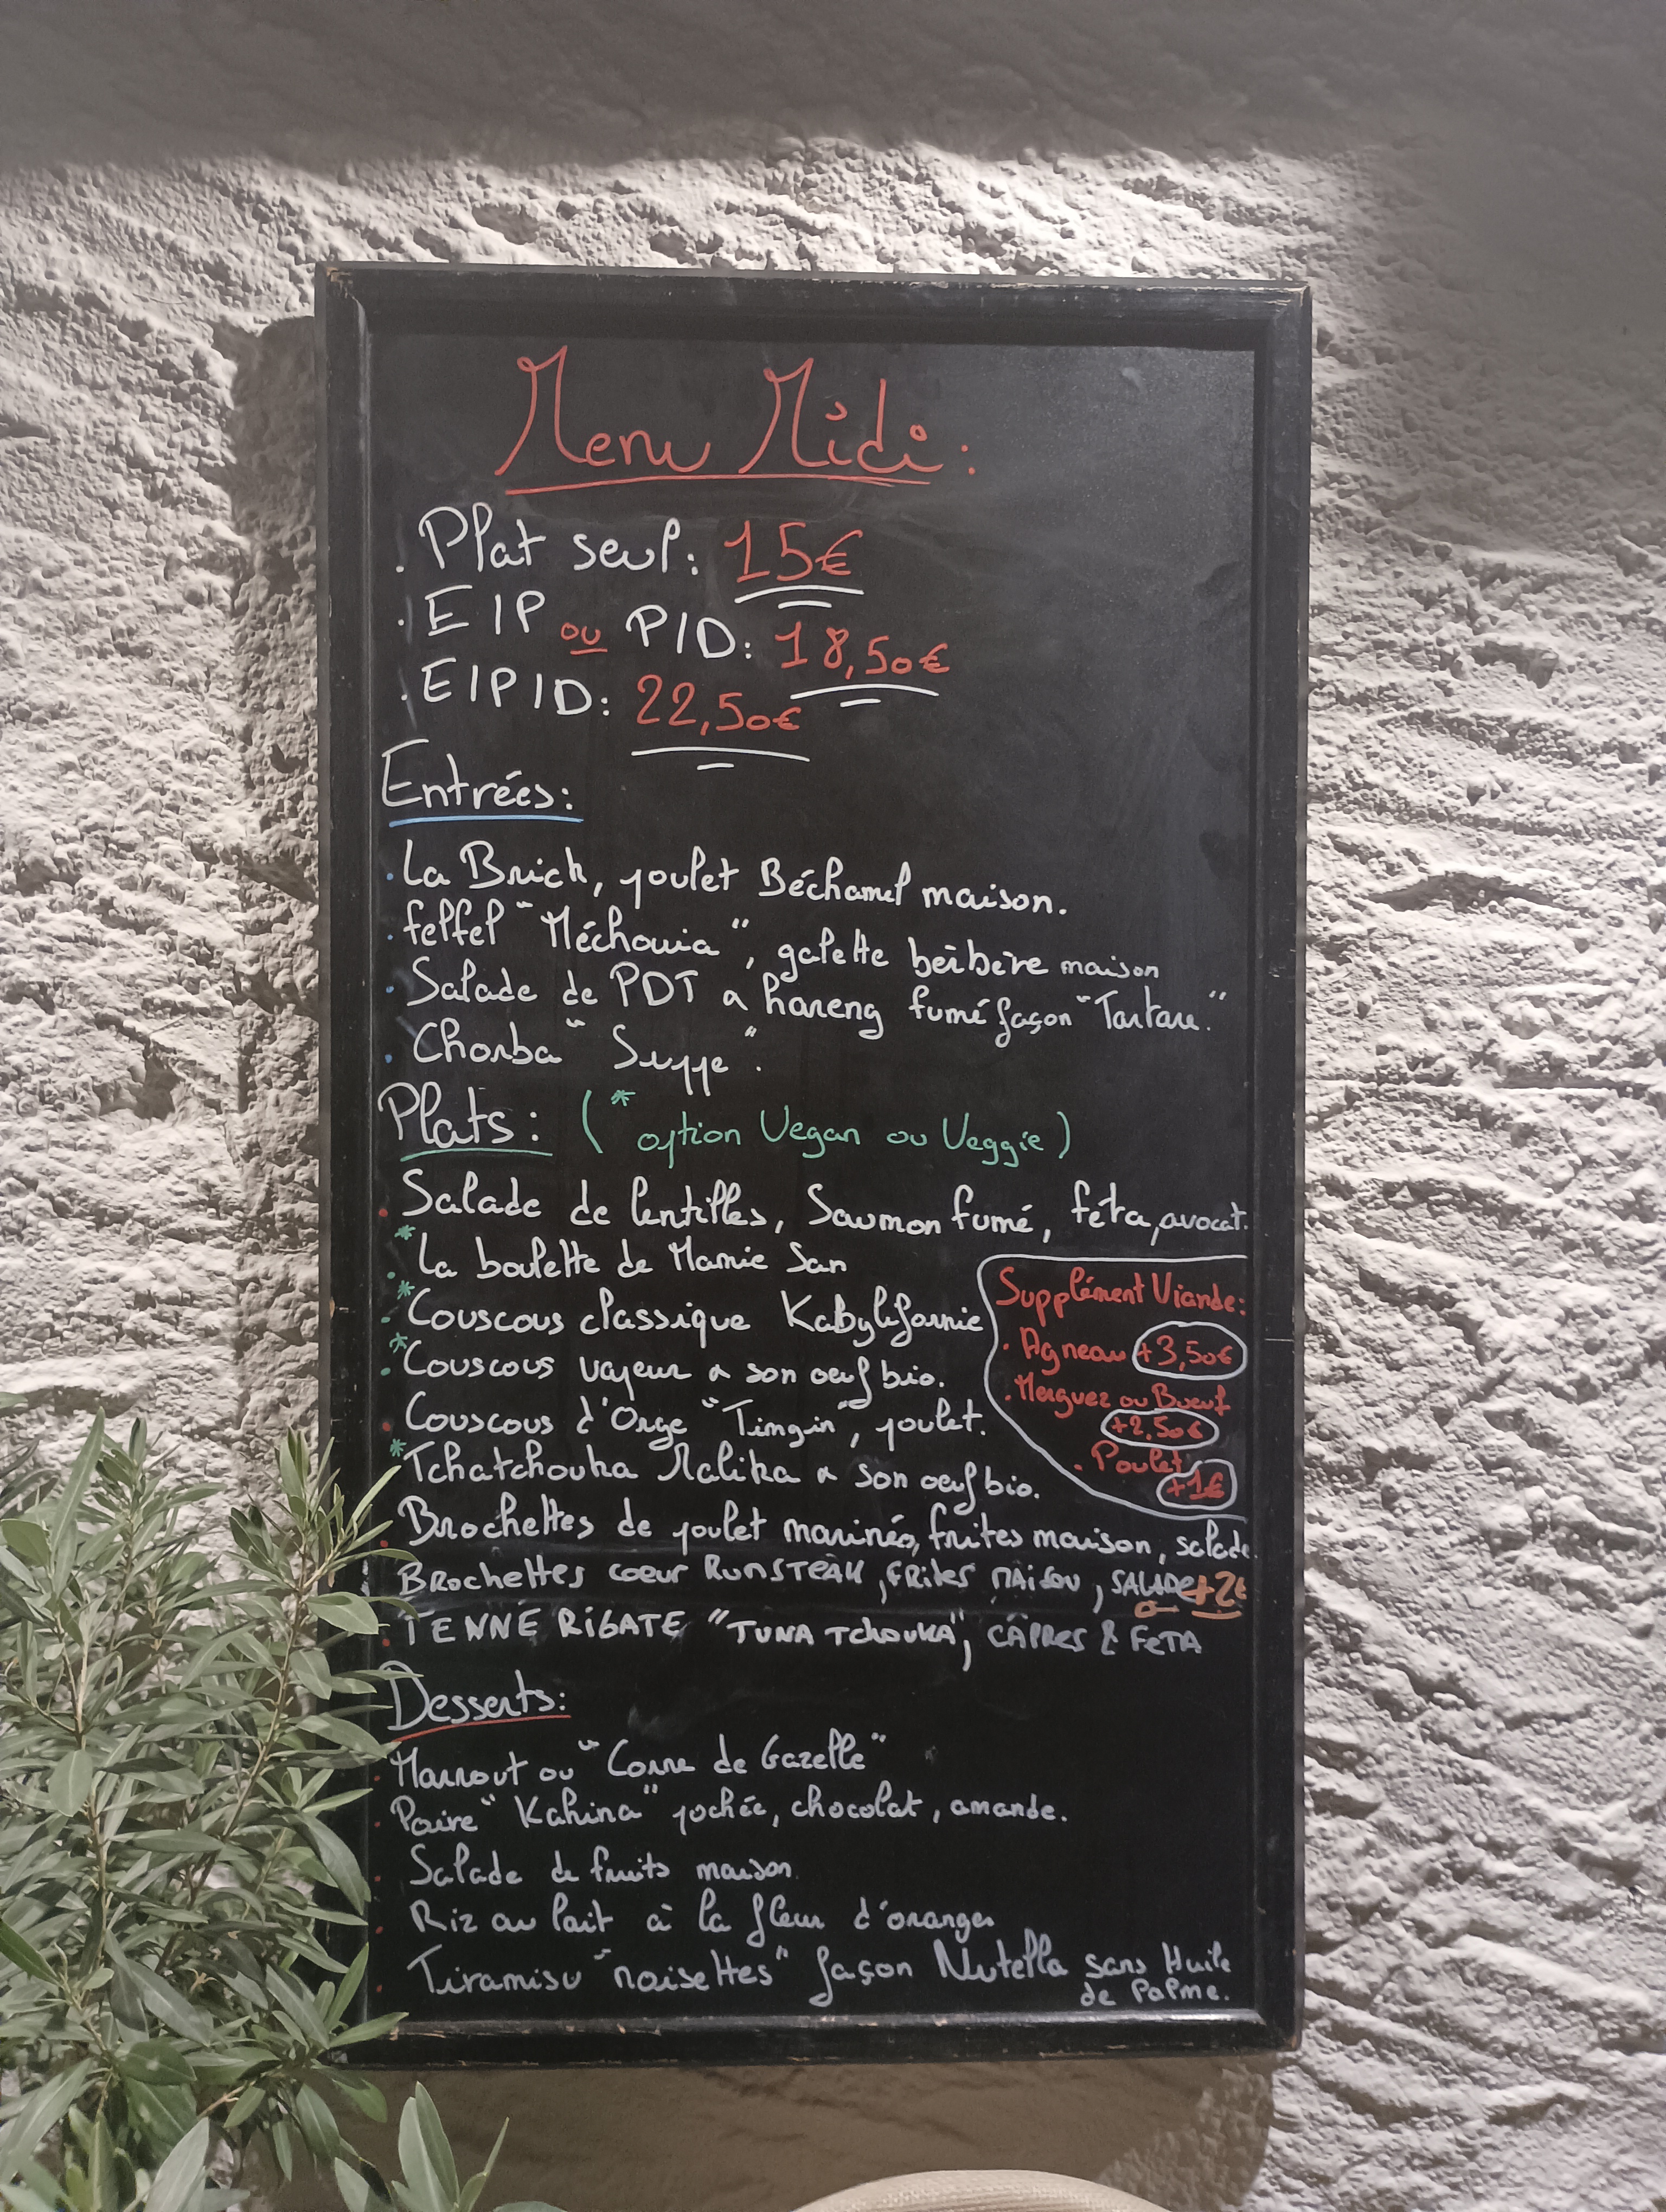 Menu Midi :
. Plat seul : 15€
. E/P ou P/D : 18,50€
. E/P/D : 22,50€
Entrées :
. La Brick, poulet Béchamel maison.
. felfel "Méchouia", galette bérbère maison
. Salade de PDT a hareng fumé façon "Tartare."
. Chorba "Suppe".
Plats : (* option Vegan ou Veggie)
. Salade de lentilles, Saumon fumé, feta, avocat.
.* La boulette de Mamie San
.* Couscous classique Kabylifornie
.* Couscous voyeur a son oeuf bio.
. Couscous d'Orge "Timgin", poulet.
* Tchatchouka Malika a son oeuf bio.
. Brochettes de poulet marinés, frites maison, salade.
Brochettes coeur RUMSTEAK, FRites MAisoN, SALADe +2€
. PENNE RiGATE "TUNA TchouKA", CÂPRes & FeTA
Supplément Viande :
. Agneau +3,50€
. Merguez ou Boeuf
+2,50€
. Poulet
+1€
Desserts :
. Makrout ou "Corne de Gazelle"
. Poire "Kahina" pochée, chocolat, amande.
. Salade de fruits maison
. Riz au lait à la fleur d'oranger
. Tiramisu "noisettes" façon Nutella sans Huile
de Palme.